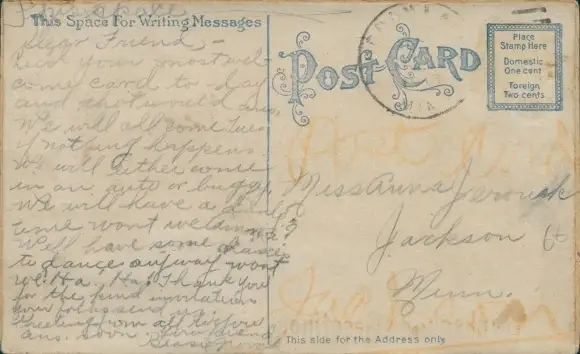 This Space For Writing Messages
Dear Friend –
your most wel-
come card to day
and
We will all come Tues
if nothing happens.
We will either come
in an auto or buggy
We will have a fine
time wont we Anna?
We'll have some
to dance anyway wont
we. Ha. Ha. Thank you
for the kind invitation
your folks send us
Greeting from all
ans. soon.
POST CARD
Place
Stamp Here
Domestic
One cent
Foreign
Two cents
Miss Anna
Jackson
Minn.
This side for the Address only